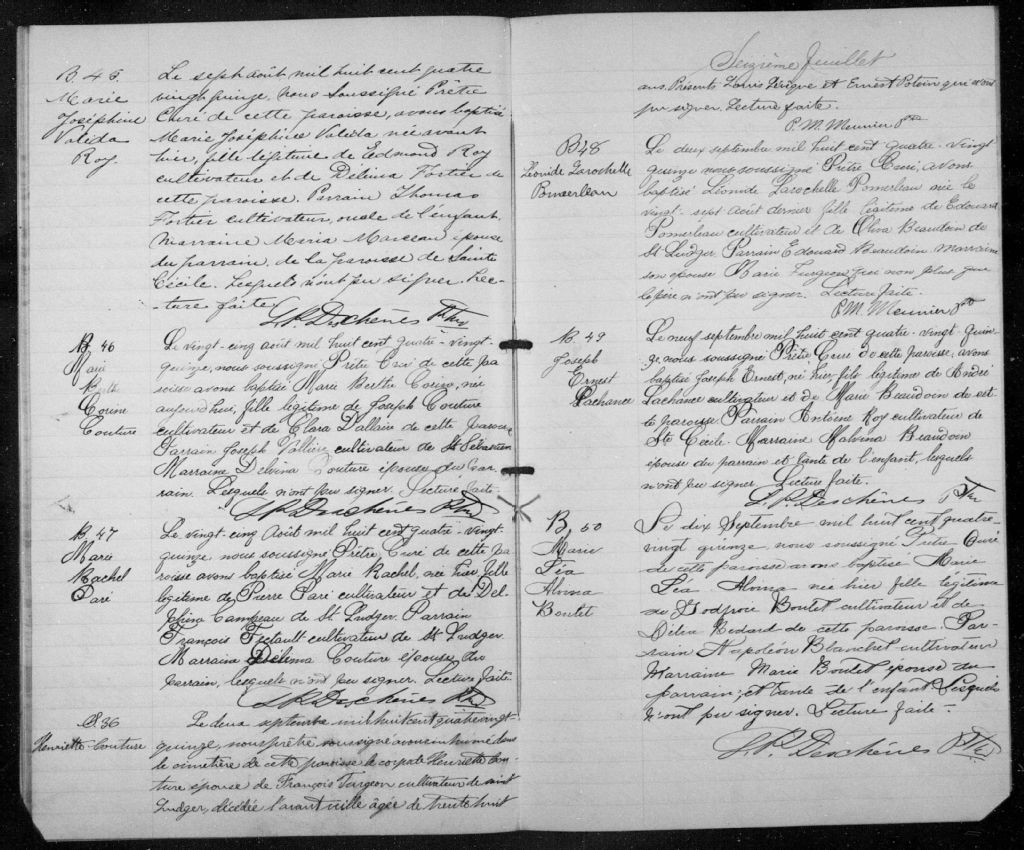 B 45.
Marie
Joséphine
Valéda
Roy.
Le sept août mil huit cent quatre
vingt quinze, nous soussigné Prêtre
Curé de cette paroisse, avons baptisé
Marie Joséphine Valéda née avant
hier, fille légitime de Edmond Roy
cultivateur et de Délima Fortier de
cette paroisse. Parrain Thomas
Fortier cultivateur, oncle de l'enfant,
marraine Maria Marceau épouse
du parrain, de la paroisse de Sainte
Cécile. Lesquels n'ont pu signer. Lec-
ture faite
Deschênes Ptre
B. 46
Marie
Berthe
Corine
Couture
Le vingt-cinq août mil huit cent quatre-vingt-
quinze, nous soussigné Prêtre Curé de cette pa
roisse avons baptisé Marie Berthe Corine, née
aujourd'hui, fille légitime de Joseph Couture
cultivateur et de Clara Dallaire de cette paroisse
Parrain Joseph Vallière cultivateur de St Sébastien
Marraine Delvina Couture épouse du par-
rain. Lesquels n'ont pu signer. Lecture faite
Deschênes Ptre
B. 47
Marie
Rachel
Paré
Le vingt-cinq Août mil huit cent quatre-vingt-
quinze, nous soussigné Prêtre, Curé de cette pa
roisse avons baptisé Marie Rachel, née hier, fille
légitime de Pierre Paré cultivateur et de Del-
phina Campeau de St. Ludger. Parrain
François cultivateur de St Ludger
Marraine Délima Couture épouse du
parrain, lesquels n'ont pu signer. Lecture faite.
Deschênes Ptre
S. 36
Henriette Couture
Le deux septembre mil huit cent quatre vingt-
quinze, nous prêtre soussigné avons inhumé dans
le cimetière de cette paroisse le corps de Henriette Cou-
ture, épouse de François Turgeon cultivateur de saint
Ludger, décédée l'avant veille âgée de trente huit
Seizième feuillet
ans. Présents Louis et Ernest Potvin qui n'ont
pu signer. Lecture faite.
P. M. Meunier Ptre
B 48
Léonide Larochelle
Pomerleau
Le deux septembre mil huit cent quatre-vingt
quinze nous soussigné Prêtre Curé, avons
baptisé Léonide Larochelle Pomerleau née le
vingt-sept Août dernier fille légitime de Edouard
Pomerleau cultivateur et de Oliva Beaudoin de
St Ludger Parrain Edouard Beaudoin marraine
son épouse Marie Turgeon qui non plus que
le père n'ont pu signer. Lecture faite.
P. M. Meunier Ptre
B. 49
Joseph
Ernest
Lachance
Le neuf septembre mil huit cent quatre-vingt quin-
ze, nous soussigné Prêtre Curé de cette paroisse, avons
baptisé Joseph Ernest, né hier, fils légitime de André
Lachance cultivateur et de Marie Beaudoin de cet-
te paroisse Parrain Antoine Roy cultivateur de
Ste Cécile. Marraine Malvina Beaudoin
épouse du parrain et tante de l'enfant, lesquels
n'ont pu signer. Lecture faite.
Deschênes Ptre
B. 50
Marie
Léa
Alvina
Boutet
Le dix Septembre mil huit cent quatre-
vingt quinze nous soussigné Prêtre Curé
de cette paroisse avons baptisé Marie
Léa Alvina née hier fille légitime
de Godfroie Boutet cultivateur et de
Délia Bedard de cette paroisse. Par-
rain Napoléon Blanchet cultivateur
Marraine Marie Boutet épouse du
parrain; et tante de l'enfant Lesquels
n'ont pu signer. Lecture faite-
Deschênes Ptre